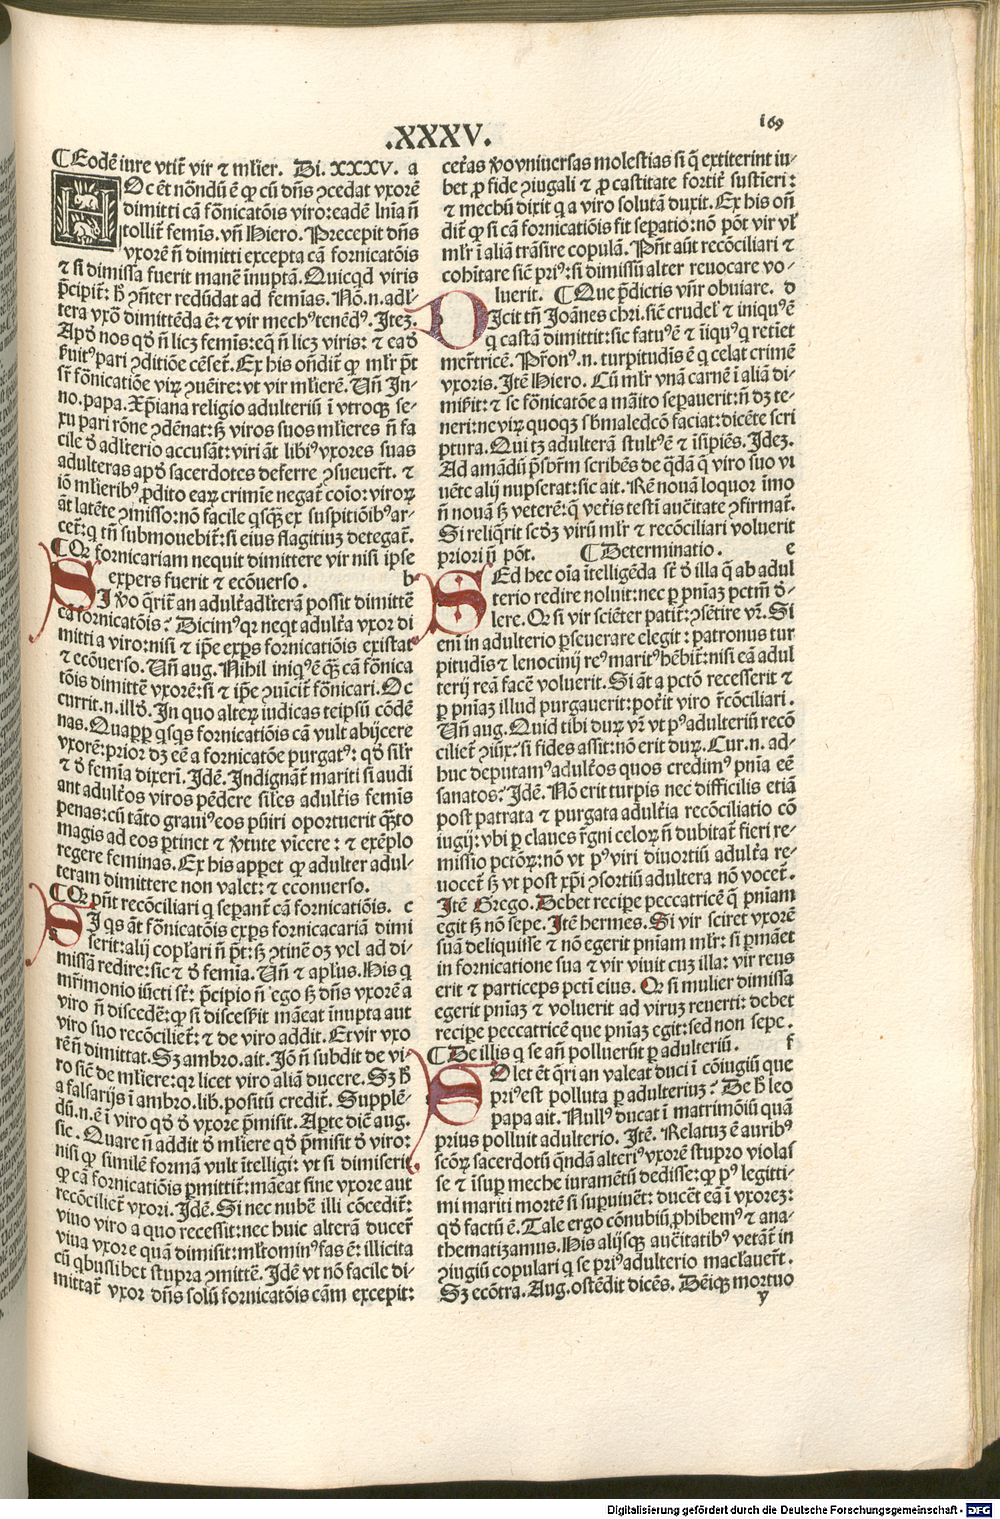 .XXXV.
169
¶Eodē iure vtit᷑ vir ⁊ mlier. Di. XXXV. a
HOc ēt nōndū ē ꝙ cū dn̄s ↄcedat vxorē
dimitti cā fōnicatōis viro: eadē lnīa n̄
tollit᷑ femīs. vn̄ Hiero. Precepit dn̄s
vxorē n̄ dimitti excepta cā fornicatōis
⁊ si dimissa fuerit manē inuptā. Quicqd viris
p̄cipit᷑: h̄ ↄn̄ter redūdat ad femīas. Nō.n.adl᷑-
tera vxō dimittēda ē: ⁊ vir mechꝰ tenēdꝰ. Itez.
Apd nos qd n̄ licz femīs: eq̄ n̄ licz viris: ⁊ eadē
ẜuitꝰ pari ↄditiōe cēset᷑. Ex his on̄dit᷑ ꝙ ml᷑r p̄t
sr̄ fōnicatiōe virū ↄueīre: vt vir mlierē. Vn̄ In-
no. papa. Xp̄iana religio adulteriū ī vtroqꝫ se-
xu pari rōne ↄdēnat: sꝫ viros suos mlieres n̄ fa
cile d̄ adl᷑terio accusāt: viri āt libiꝰ vxores suas
adulteras apd sacerdotes deferre ↄsueuer̄t. ⁊
iō mlieribꝰ ꝓdito earꝝ crimīe negat᷑ coīo: virorꝝ
āt latēte ↄmisso: nō facile qsqꝫ ex suspitiōibꝰ ar-
cet᷑: q tn̄ submouebit᷑: si eius flagitiuz detegat᷑.
¶Qꝙ fornicariam nequit dimittere vir nisi ipse
expers fuerit ⁊ ecōuerso. b
SI v̄o q̄rit᷑ an adult᷑ adl᷑terā possit dimittē
cā fornicatōis? Dicimꝰ qꝛ neqt adult᷑a vxor di
mitti a viro: nisi ⁊ ip̄e exp̄s fornicatiōis existat
⁊ ecōuerso. Vn̄ aug. Nihil iniqꝰ ē q̄ꝫ cā fōnica
tōis dimittē vxorē: si ⁊ ip̄e ↄuīcit᷑ fōnicari. Oc
currit.n.illd. In quo alterꝝ iudicas teipsū cōdē
nas. Quapp qsqs fornicatiōis cā vult abijcere
vxorē: prior dꝫ eē a fornicatōe purgatꝰ: qd sil᷑r
⁊ d̄ femīa dixerī. Idē. Indignāt᷑ mariti si audi
ant adult᷑os viros pēdere siles adult᷑is femīs
penas: cū tāto grauiꝰ eos pūiri oportuerit q̄ꝫto
magis ad eos pertinet ⁊ v̄tute vīcere: ⁊ exēplo
regere feminas. Ex his apꝑet ꝙ adulter adul-
teram dimittere non valet: ⁊ econuerso.
¶Qꝙ pn̄t recōciliari q separant᷑ cā fornicatiōis. c
SI qs āt fōnicatiōis exp̄s fornicacariā dimi
serit: alij copl᷑ari n̄ p̄t: sꝫ ↄtinē oꝫ vel ad di-
missā redire: sic ⁊ d̄ femīa. Vn̄ ⁊ apl᷑us. His q
mr̄imonio iūcti st᷑: p̄cipio n̄ ego sꝫ dn̄s vxorē a
viro n̄ discedē: ꝙ si discess̄it māeat inupta aut
viro suo recōciliet᷑: ⁊ de viro addit. Et vir vxo
rē n̄ dimittat. Sꝫ ambro. ait. Iō n̄ subdit de vi-
ro sic̄ de mliere: qꝛ licet viro aliā ducere. Sꝫ h̄
a falsarijs ī ambro. lib. positū credit᷑. Supplē-
dū.n.ē ī viro qd d̄ vxore p̄misit. Apte dic̄ aug.
sic. Quare n̄ addit d̄ mliere qd p̄misit d̄ viro:
nisi ꝙ similē formā vult ītelligi: vt si dimiserit
ꝙ cā fornicatiōis ꝑmittit᷑: māeat sine vxore aut
recōciliet᷑ vxori. Idē. Si nec nubē illi cōcedit᷑:
viuo viro a quo recessit: nec huic alterā ducer᷑
viua vxore quā dimisit: ml᷑tominꝰ fas ē: illicita
cū qbuslibet stupra ↄmittē. Idē vt nō facile di-
mittat᷑ vxor dn̄s solū fornicatōis cām excepit:
cet᷑as v̄o vniuersas molestias si q̄ extiterint iu-
bet ꝓ fide ↄiugali ⁊ ꝓ castitate fortit᷑ sustīeri:
⁊ mechū dixit q a viro solutam duxit. Ex his on̄
dit᷑ ꝙ si cā fornicatiōis fit sepatio: nō pōt vir vl᷑
ml᷑r ī aliā trāsire copulā. Pn̄t aūt recōciliari ⁊
cohītare sic̄ priꝰ: si dimissū alter reuocare vo-
luerit. ¶Que p̄dictis vn̄r obuiare. d
DIcit tn̄ Ioānes chri. sic̄ crudel᷑ ⁊ iniquꝰ ē
q castā dimittit: sic fatuꝰ ē ⁊ īiquꝰ q retiet
mer̄tricē. Pr̄onꝰ.n. turpitudis ē q celat crimē
vxoris. Itē Hiero. Cū ml᷑r vnā carnē ī aliā di-
miẜit: ⁊ se fōnicatōe a māito sepauerit: n̄ dꝫ te-
neri: ne virꝝ quoqꝫ sb maledcō faciat: dicēte scri
ptura. Qui tꝫ adulterā stultꝰ ē ⁊ īsipiēs. Idez.
Ad amādū p̄sbr̄m scribēs de q̄dā q̄ viro suo vi
uēte alij nupserat: sic ait. Rē nouā loquor īmo
n̄ nouā sꝫ veterē: q vet᷑is testī auc̄itate ↄfirmat᷑.
Si reliq̄rit sc̄dꝫ virū ml᷑r ⁊ recōciliari voluerit
priori n̄ pōt. ¶Determinatio. e
SEd hec oīa ītelligēda st᷑ d̄ illa q̄ ab adul
terio redire noluit: nec ꝑ pniaꝫ pctm̄ d̄-
lere. Qꝛ si vir sciēter patit᷑: ↄsētire vr̄. Si
eni in adulterio ꝑseuerare elegit: patronus tur
pitudīs ⁊ lenocinij reꝰ maritꝰ hēbit᷑: nisi eā adul
terij reā facē voluerit. Si āt a pctō recesserit ⁊
ꝑ pniaꝫ illud purgauerit: pot᷑it viro r̄cōciliari.
Vn̄ aug. Quid tibi durꝝ vr̄ vt pꝰ adulteriū recō
ciliet᷑ ↄiūx? si fides assit: nō erit durꝝ. Cur.n. ad-
huc deputamꝰ adult᷑os quos credimꝰ pnīa eē
sanatos? Idē. Nō erit turpis nec difficilis etiā
post patrata ⁊ purgata adult᷑ia recōciliatio cō
iugij: vbi ꝑ claues r̄gni celorꝝ n̄ dubitat᷑ fieri re-
missio pctōrꝝ: nō vt pꝰ viri diuortiū adult᷑a re-
uocet᷑ sꝫ vt post xp̄i ↄsortiū adultera nō vocet᷑.
Itē Grego. Debet recipe peccatricē q̄ pniam
egit sꝫ nō sepe. Itē hermes. Si vir sciret vxorē
suā deliquisse ⁊ nō egerit pniam ml᷑r: si ꝑmāet
in fornicatione sua ⁊ vir viuit cuz illa: vir reus
erit ⁊ particeps pcti eius. Qꝙ si mulier dimissa
egerit pniaꝫ ⁊ voluerit ad viruz reuerti: debet
recipe peccatricē que pniaꝫ egit: sed non sepe.
¶De illis q se an̄ polluerūt ꝑ adulteriū. f
SOlet ēt q̄ri an valeat duci ī cōiugiū que
priꝰ est polluta ꝑ adulteriuz? De h̄ leo
papa ait. Nullꝰ ducat ī matrimōiū quā
prius polluit adulterio. Itē. Relatuz ē auribꝰ
scōꝝ sacerdotū q̄ndā alteriꝰ vxorē stupro violas
se ⁊ īsuꝑ meche iuramētū dedisse: ꝙ pꝰ legitti-
mi mariti mortē si suꝑuiuēt: ducēt eā ī vxorez:
qd factū ē. Tale ergo cōnubiū ꝓhibemꝰ ⁊ ana-
thematizamus. His alijsqꝫ auc̄itatibꝰ vetāt᷑ in
ↄiugiū copulari q se priꝰ adulterio maclauer̄t.
Sꝫ ecōtra. Aug. ostēdit dicēs. Deīqꝫ mortuo
y
Digitalisierung gefördert durch die Deutsche Forschungsgemeinschaft - DFG